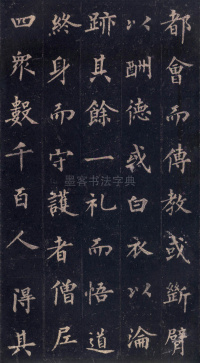 都會而傳教或斷臂
以酬德或白衣以淪
跡其餘一礼而悟道
終身而守護者僧尼
四衆數千百人得其
墨客书法字典